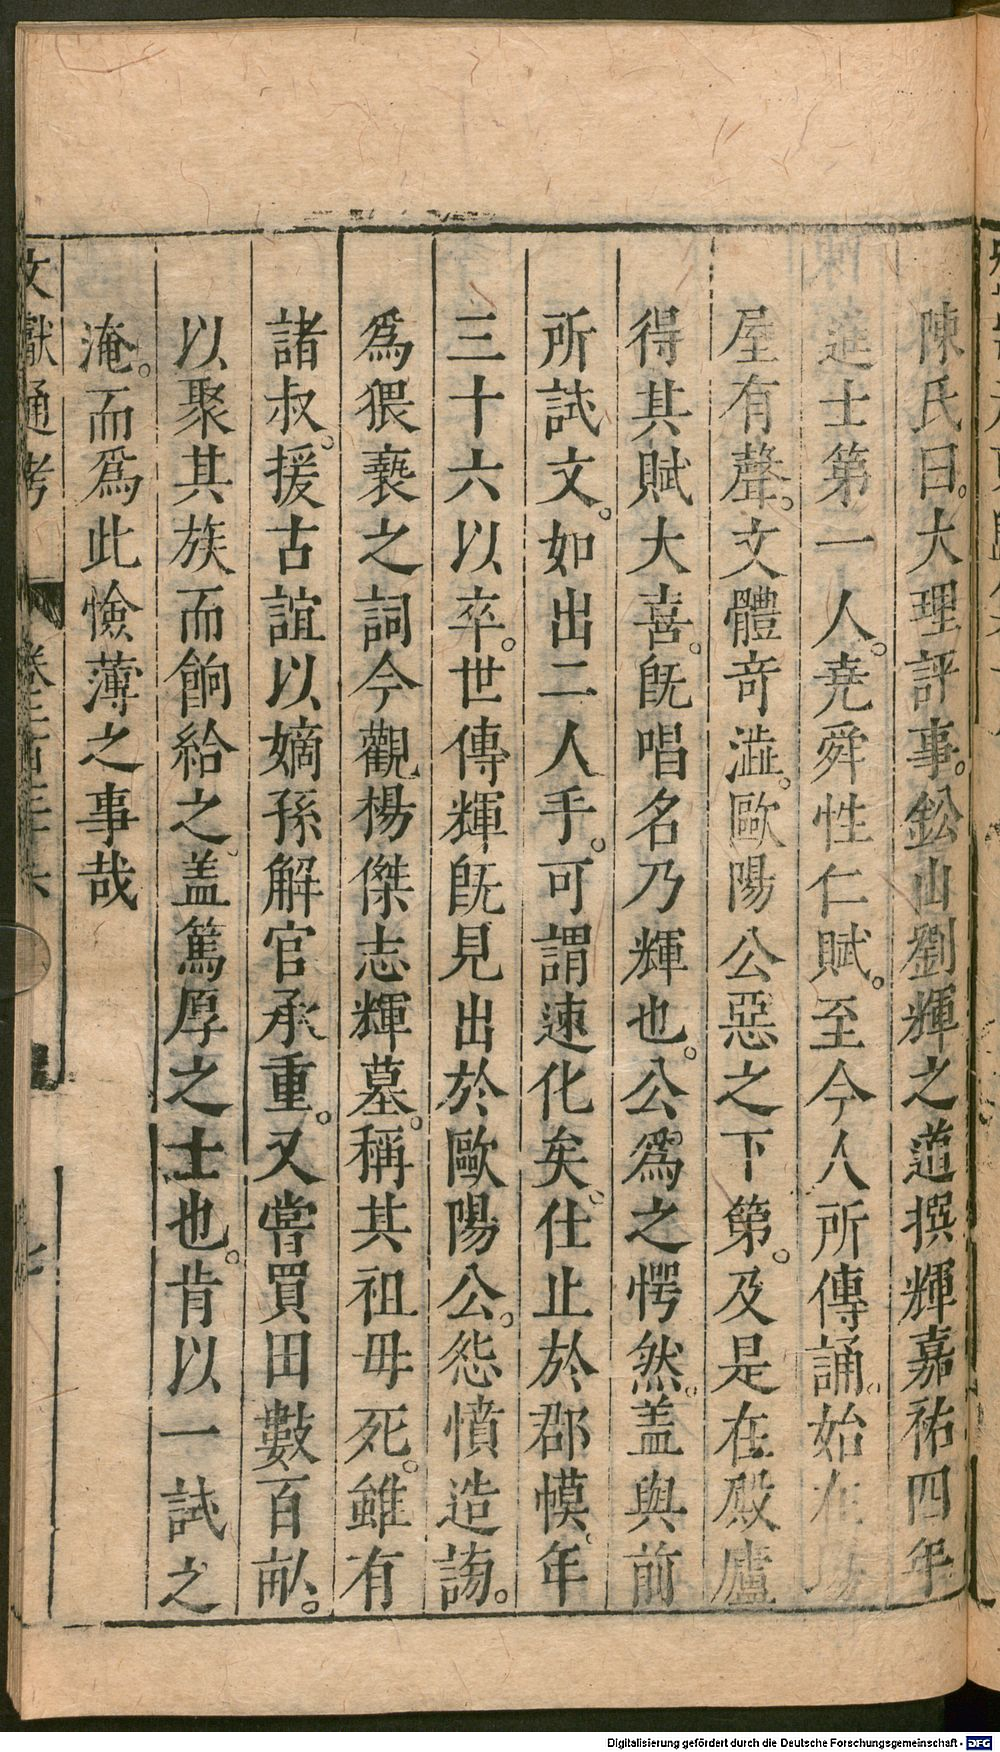 陳氏曰。大理評事。鈆山劉輝之道撰輝嘉祐四年
進士第一人。堯舜性仁賦。至今人所傳誦。始在場
屋有聲。文體奇澁。歐陽公惡之下第。及是在殿廬
得其賦大喜。旣唱名乃輝也。公爲之愕然。盖與前
所試文。如出二人手。可謂速化矣。仕止於郡幙。年
三十六以卒。世傳輝旣見出於歐陽公。怨憤造謗。
爲猥褻之詞今觀楊傑志輝墓。稱其祖母死。雖有
諸叔。援古誼以嫡孫解官承重。又嘗買田數百畝。
以聚其族而餉給之。盖篤厚之士也。肯以一試之
淹。而爲此憸薄之事哉
文獻通考 卷二百三十
Digitalisierung gefördert durch die Deutsche Forschungsgemeinschaft - DFG